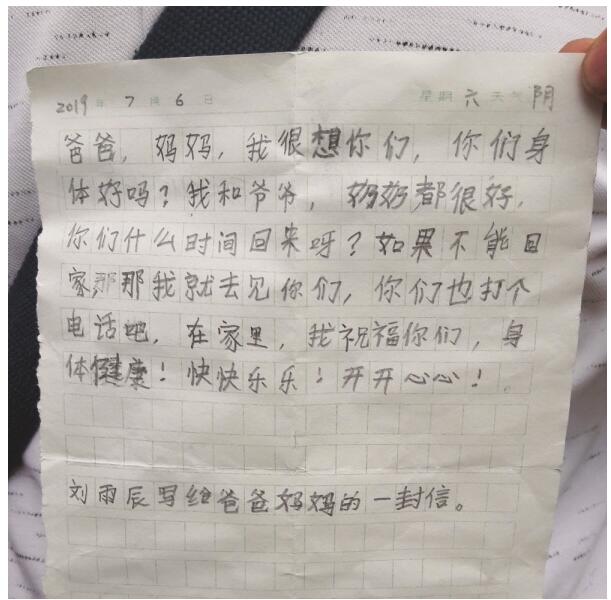 2019年 7月 6日 星期六 天气 阴
爸爸，妈妈，我很想你们，你们身
体好吗？我和爷爷，奶奶都很好，
你们什么时间回来呀？如果不能回
家,那那我就去见你们，你们也打个
电话吧，在家里，我祝福你们，身
体健康！快快乐乐！开开心心！
刘雨辰写给爸爸妈妈的一封信。